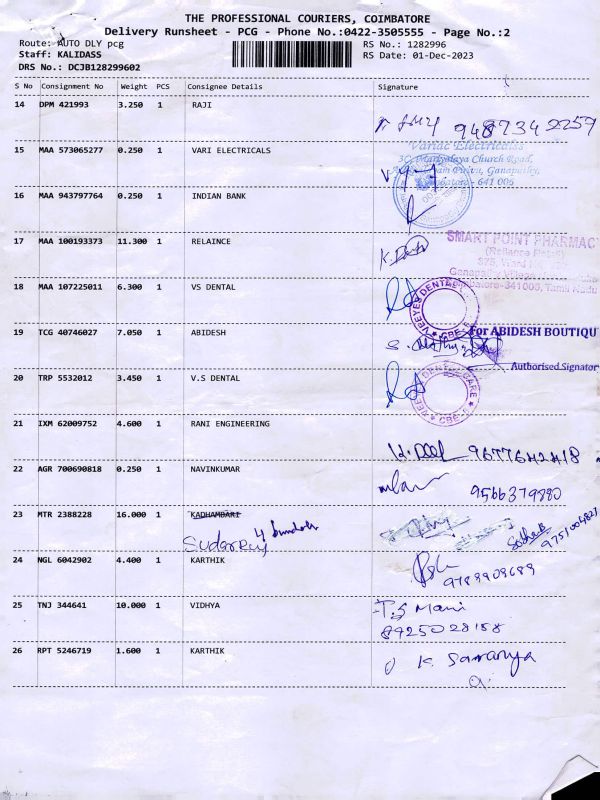 THE PROFESSIONAL COURIERS, COIMBATORE
Delivery Runsheet - PCG - Phone No.:0422-3505555 - Page No.:2
Route: AUTO DLY pcg RS No.: 1282996
Staff: KALIDASS RS Date: 01-Dec-2023
DRS No.: DCJB128299602
S No Consignment No Weight PCS Consignee Details Signature
14 DPM 421993 3.250 1 RAJI
9487342257
15 MAA 573065277 0.250 1 VARI ELECTRICALS
Variac Electricals
Church Road,
Ganapathy,
641 006
16 MAA 943797764 0.250 1 INDIAN BANK
17 MAA 100193373 11.300 1 RELAINCE
SMART POINT PHARMAC
(Reliance Retail)
18 MAA 107225011 6.300 1 VS DENTAL
19 TCG 40746027 7.050 1 ABIDESH
For ABIDESH BOUTIQU
Authorised Signator
20 TRP 5532012 3.450 1 V.S DENTAL
21 IXM 62009752 4.600 1 RANI ENGINEERING
9677642418
22 AGR 700690818 0.250 1 NAVINKUMAR
9566379880
23 MTR 2388228 16.000 1 KADHAMBARI
9751004827
24 NGL 6042902 4.400 1 KARTHIK
9789909689
25 TNJ 344641 10.000 1 VIDHYA
T.S Mani
8925028158
26 RPT 5246719 1.600 1 KARTHIK
K. Saranya